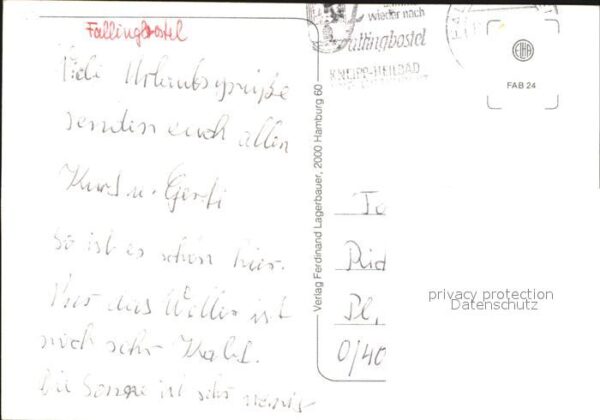 Fallingbostel
Viele Urlaubsgrüße
senden euch allen
Kurt u. Gerti
So ist es schön hier.
Nur das Wetter ist
noch sehr Kalt.
Die Sonne ist sehr
Verlag Ferdinand Lagerbauer, 2000 Hamburg 60
wieder nach
Fallingbostel
KNEIPP-HEILBAD
FAB 24
Pl.
privacy protection
Datenschutz